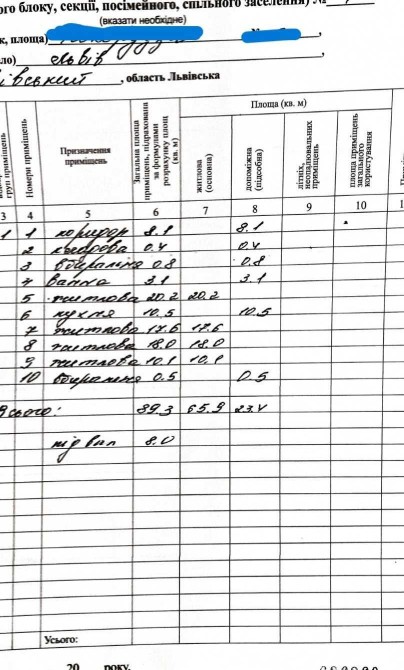 ого блоку, секції, посімейного, спільного заселення) №
(вказати необхідне)
к, площа)
ло) Львів ,
, область Львівська
груп приміщень
Номери приміщень
Призначення приміщень
Загальна площа приміщень, підрахована за формулами розрахунку площ (кв. м)
Площа (кв. м)
житлова (основна)
допоміжна (підсобна)
літніх, неопалювальних приміщень
площа приміщень загального користування
3 4 5 6 7 8 9 10 1
1 1 коридор 8.1 8.1
2 0.4 0.4
3 вбиральня 0.8 0.8
4 ванна 3.1 3.1
5 житлова 20.2 20.2
6 кухня 10.5 10.5
7 житлова 17.6 17.6
8 житлова 18.0 18.0
9 житлова 10.1 10.1
10 вбиральня 0.5 0.5
Усього: 89.3 65.9 23.4
підвал 8.0
Усього:
20 року.